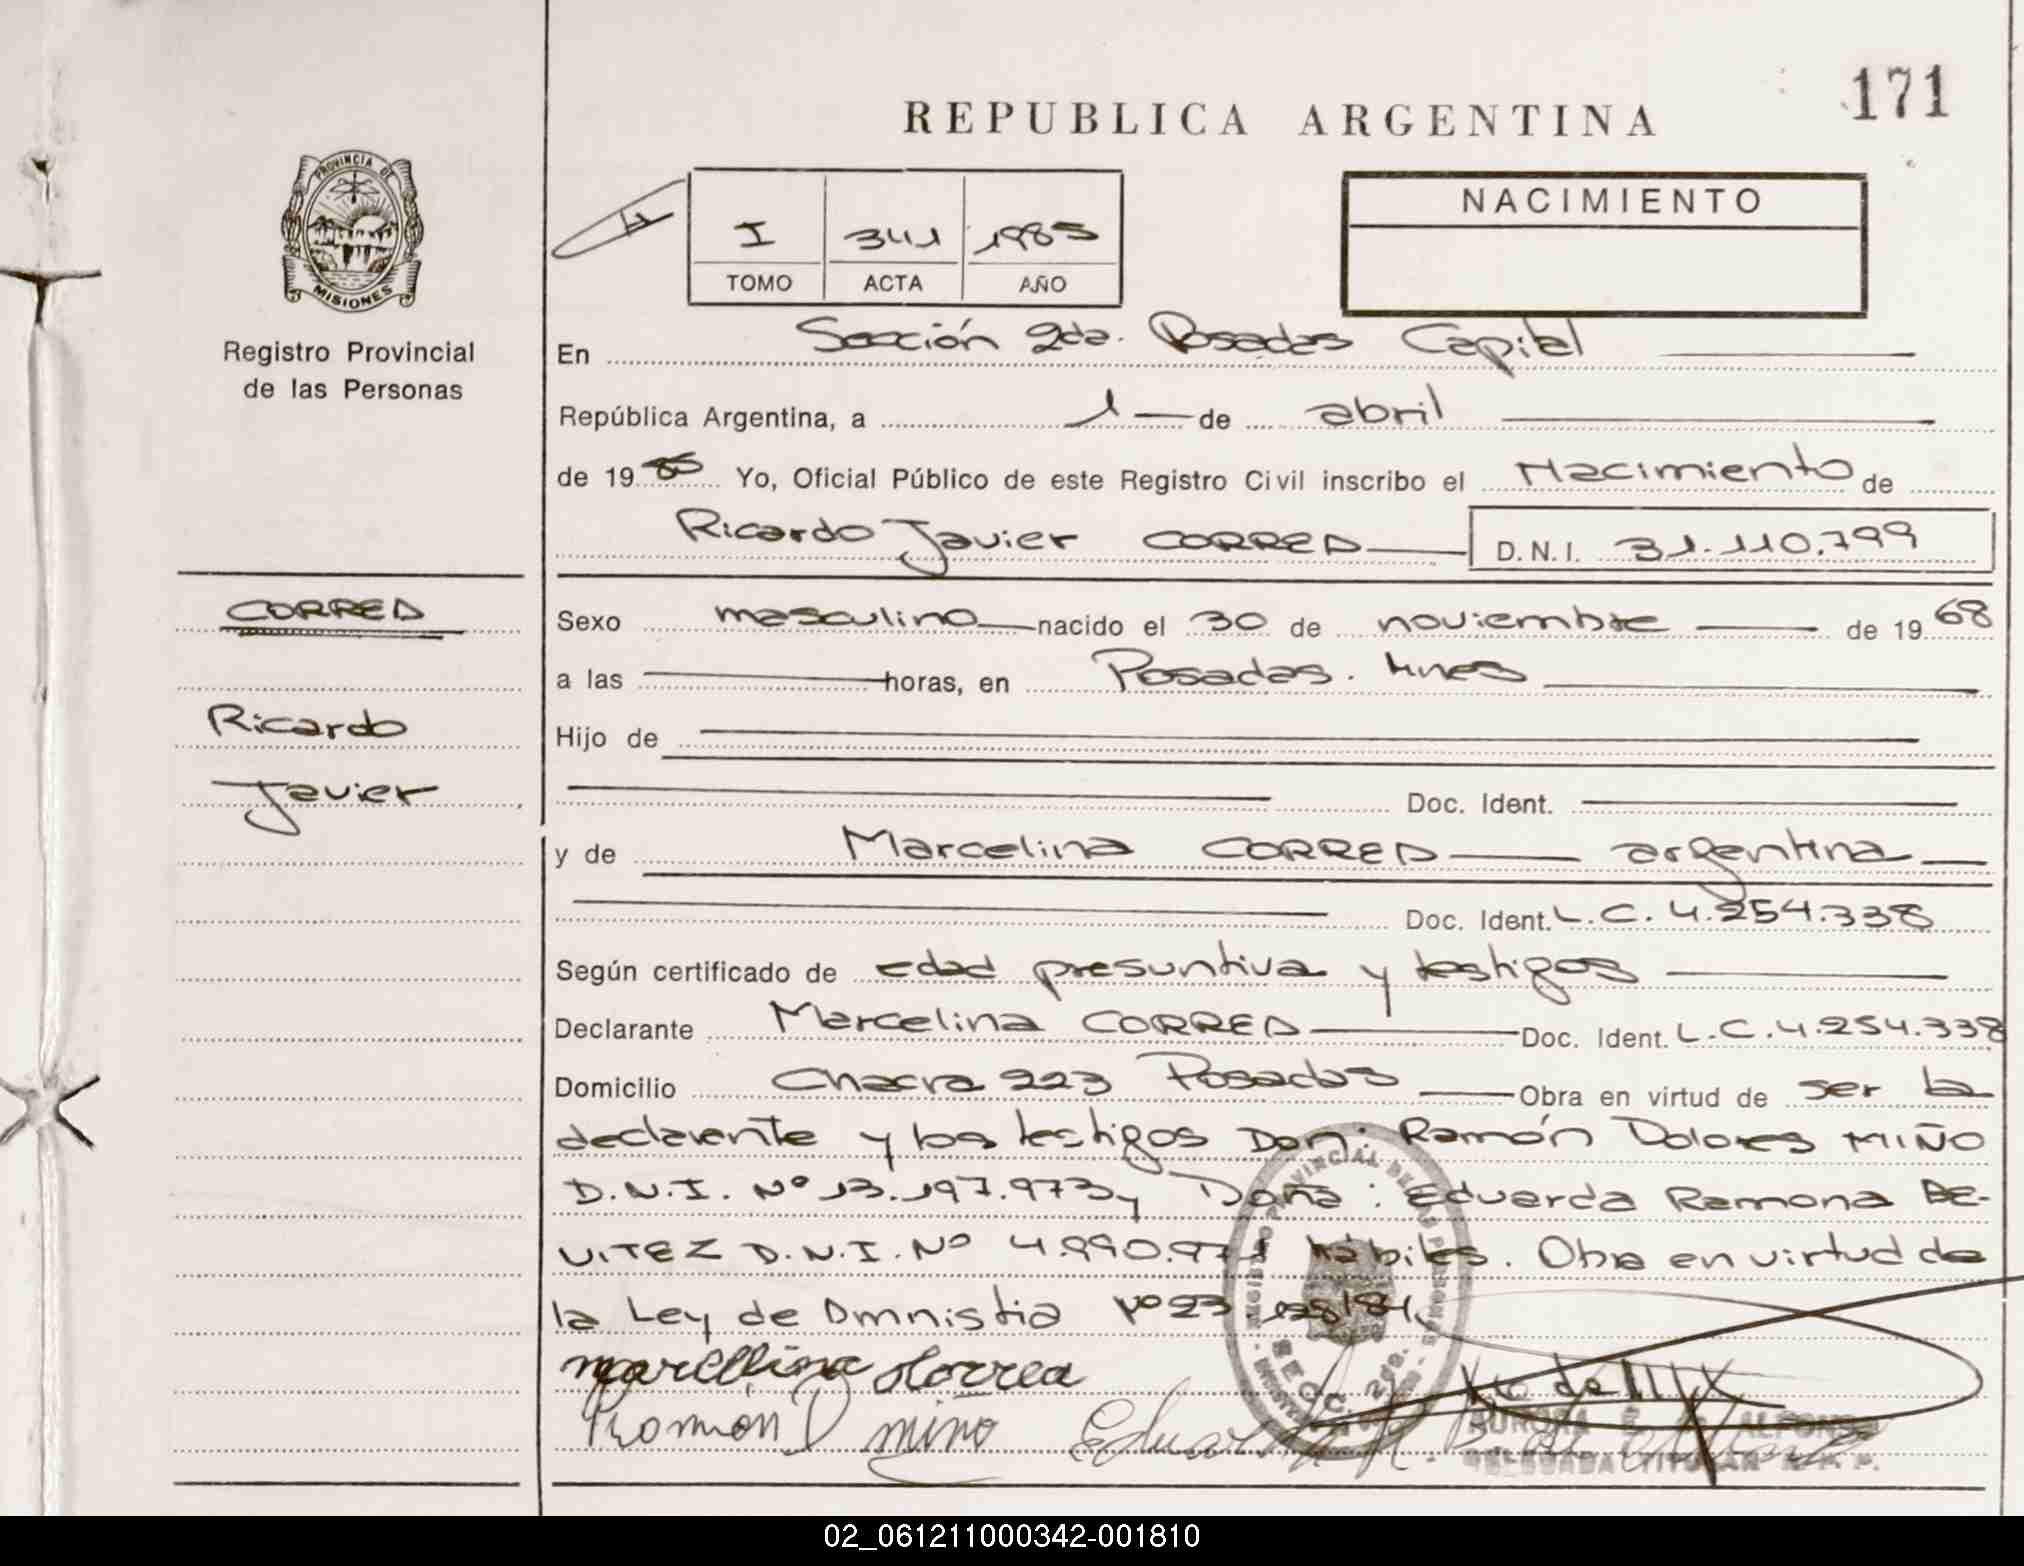 171
REPUBLICA ARGENTINA
PROVINCIA DE
MISIONES
Registro Provincial
de las Personas
I 341 1985
TOMO ACTA AÑO
NACIMIENTO
En Sección 2da. Posadas Capital
República Argentina, a 1 de abril
de 1985 Yo, Oficial Público de este Registro Civil inscribo el Nacimiento de
Ricardo Javier CORREA D.N.I. 31.110.799
CORREA
Ricardo
Javier
Sexo masculino nacido el 30 de noviembre de 1968
a las horas, en Posadas. Mnes
Hijo de
Doc. Ident.
y de Marcelina CORREA argentina
Doc. Ident. L.C. 4.254.338
Según certificado de edad presuntiva y testigos
Declarante Marcelina CORREA Doc. Ident. L.C. 4.254.338
Domicilio Chacra 223 Posadas Obra en virtud de ser la
declarante y los testigos Don: Ramón Dolores MIÑO
D.N.I. Nº 13.197.973 y Doña: Eduarda Ramona BE-
VITEZ D.N.I. Nº hábiles. Obra en virtud de
la Ley de Amnistia Nº 23
Correa
Ramón D miño
SECC. 2da.
AURORA E. ALFONSO
DELEGADA TITULAR
02_061211000342-001810